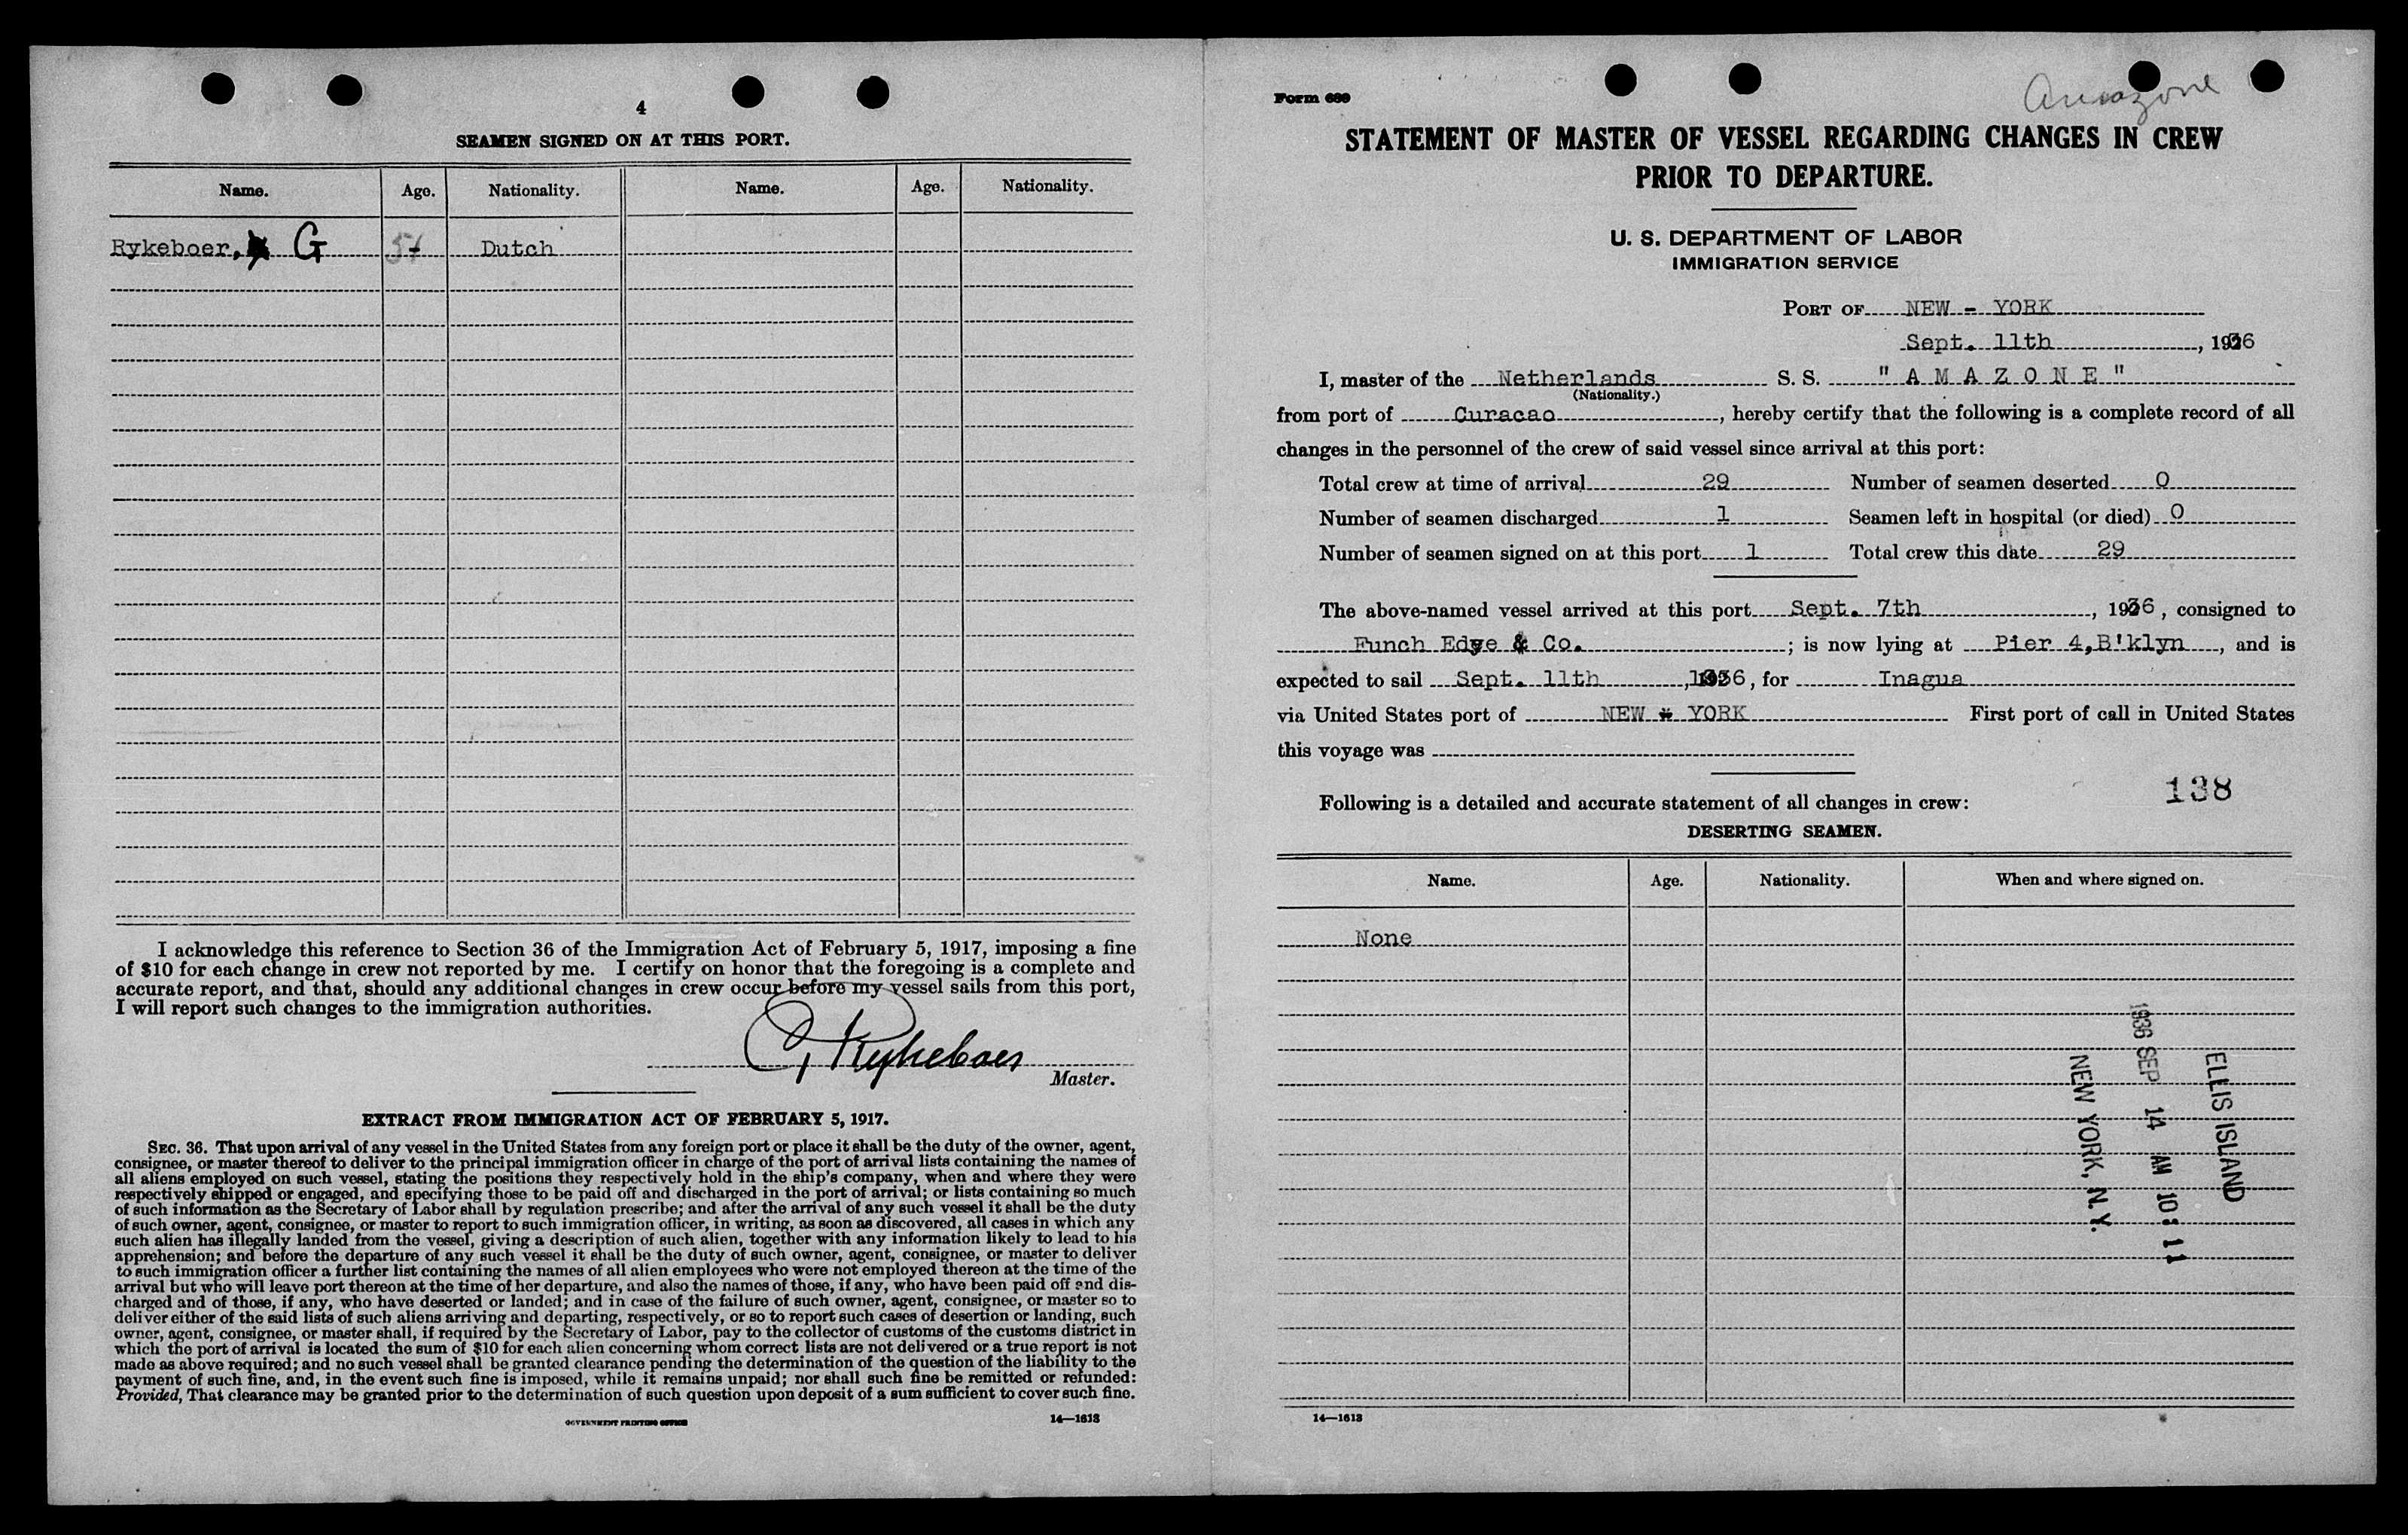 4
SEAMEN SIGNED ON AT THIS PORT.
Name. Age. Nationality. Name. Age. Nationality.
Rykeboer, G Dutch
I acknowledge this reference to Section 36 of the Immigration Act of February 5, 1917, imposing a fine
of $10 for each change in crew not reported by me. I certify on honor that the foregoing is a complete and
accurate report, and that, should any additional changes in crew occur before my vessel sails from this port,
I will report such changes to the immigration authorities.
G Rykeboer
Master.
EXTRACT FROM IMMIGRATION ACT OF FEBRUARY 5, 1917.
SEC. 36. That upon arrival of any vessel in the United States from any foreign port or place it shall be the duty of the owner, agent,
consignee, or master thereof to deliver to the principal immigration officer in charge of the port of arrival lists containing the names of
all aliens employed on such vessel, stating the positions they respectively hold in the ship's company, when and where they were
respectively shipped or engaged, and specifying those to be paid off and discharged in the port of arrival; or lists containing so much
of such information as the Secretary of Labor shall by regulation prescribe; and after the arrival of any such vessel it shall be the duty
of such owner, agent, consignee, or master to report to such immigration officer, in writing, as soon as discovered, all cases in which any
such alien has illegally landed from the vessel, giving a description of such alien, together with any information likely to lead to his
apprehension; and before the departure of any such vessel it shall be the duty of such owner, agent, consignee, or master to deliver
to such immigration officer a further list containing the names of all alien employees who were not employed thereon at the time of the
arrival but who will leave port thereon at the time of her departure, and also the names of those, if any, who have been paid off and dis-
charged and of those, if any, who have deserted or landed; and in case of the failure of such owner, agent, consignee, or master so to
deliver either of the said lists of such aliens arriving and departing, respectively, or so to report such cases of desertion or landing, such
owner, agent, consignee, or master shall, if required by the Secretary of Labor, pay to the collector of customs of the customs district in
which the port of arrival is located the sum of $10 for each alien concerning whom correct lists are not delivered or a true report is not
made as above required; and no such vessel shall be granted clearance pending the determination of the question of the liability to the
payment of such fine, and, in the event such fine is imposed, while it remains unpaid; nor shall such fine be remitted or refunded:
Provided, That clearance may be granted prior to the determination of such question upon deposit of a sum sufficient to cover such fine.
GOVERNMENT PRINTING OFFICE 14—1613
Form 689
Amazone
STATEMENT OF MASTER OF VESSEL REGARDING CHANGES IN CREW
PRIOR TO DEPARTURE.
U. S. DEPARTMENT OF LABOR
IMMIGRATION SERVICE
PORT OF NEW - YORK
Sept. 11th, 1936
I, master of the Netherlands S. S. " A M A Z O N E "
(Nationality.)
from port of Curacao, hereby certify that the following is a complete record of all
changes in the personnel of the crew of said vessel since arrival at this port:
Total crew at time of arrival 29 Number of seamen deserted 0
Number of seamen discharged 1 Seamen left in hospital (or died) 0
Number of seamen signed on at this port 1 Total crew this date 29
The above-named vessel arrived at this port Sept. 7th, 1936, consigned to
Funch Edye & Co.; is now lying at Pier 4,B'klyn, and is
expected to sail Sept. 11th, 1936, for Inagua
via United States port of NEW - YORK First port of call in United States
this voyage was
138
Following is a detailed and accurate statement of all changes in crew:
DESERTING SEAMEN.
Name. Age. Nationality. When and where signed on.
None
ELLIS ISLAND
1936 SEP 14 AM 10:11
NEW YORK, N.Y.
14—1613